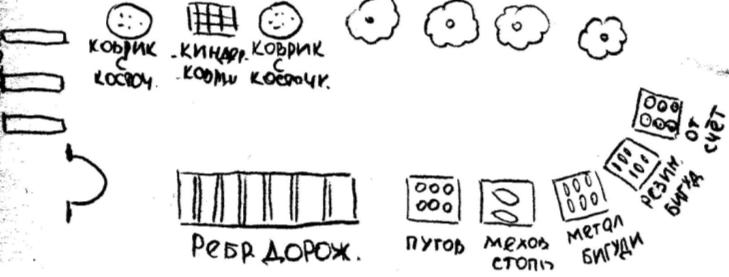 КОВРИК
С
КОСТОЧ.
КИНДЕР.
КОВРИ
КОВРИК
С
КОСТОЧК.
РЕБР. ДОРОЖ.
ПУГОВ
МЕХОВ
СТОПЫ
МЕТАЛ
БИГУДИ
РЕЗИН.
БИГУД
ОТ
СЧЁТ